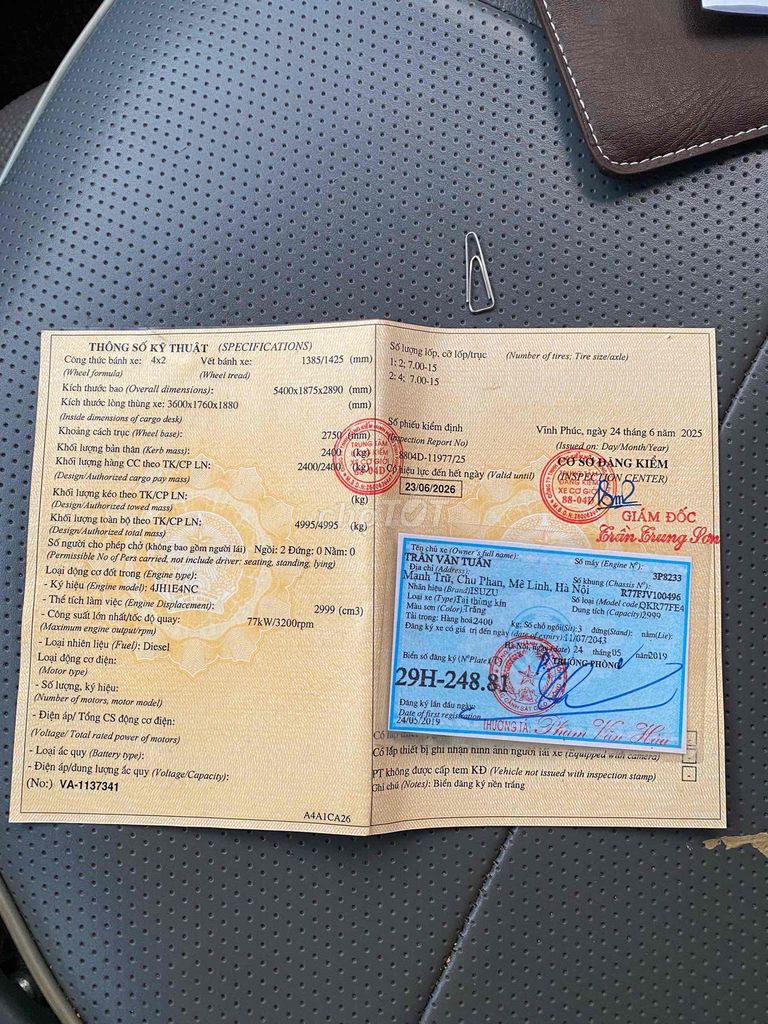 THÔNG SỐ KỸ THUẬT (SPECIFICATIONS)
Công thức bánh xe: 4x2 Vết bánh xe: 1385/1425 (mm)
(Wheel formula) (Wheel tread)
Kích thước bao (Overall dimensions): 5400x1875x2890 (mm)
Kích thước lòng thùng xe: 3600x1760x1880 (mm)
(Inside dimensions of cargo desk)
Khoảng cách trục (Wheel base): 2750 (mm)
Khối lượng bản thân (Kerb mass): 2400 (kg)
Khối lượng hàng CC theo TK/CP LN: 2400/2400 (kg)
(Design/Authorized cargo pay mass)
Khối lượng kéo theo TK/CP LN: (kg)
(Design/Authorized towed mass)
Khối lượng toàn bộ theo TK/CP LN: 4995/4995 (kg)
(Design/Authorized total mass)
Số người cho phép chở (không bao gồm người lái) Ngồi: 2 Đứng: 0 Nằm: 0
(Permissible No of Pers carried, not include driver: seating, standing, lying)
Loại động cơ đốt trong (Engine type):
- Ký hiệu (Engine model): 4JH1E4NC
- Thể tích làm việc (Engine Displacement): 2999 (cm3)
- Công suất lớn nhất/tốc độ quay: 77kW/3200rpm
(Maximum engine output/rpm)
- Loại nhiên liệu (Fuel): Diesel
Loại động cơ điện:
(Motor type)
- Số lượng, ký hiệu:
(Number of motors, motor model)
- Điện áp/ Tổng CS động cơ điện:
(Voltage/ Total rated power of motors)
- Loại ắc quy (Battery type):
- Điện áp/dung lượng ắc quy (Voltage/Capacity):
(No:) VA-1137341
A4A1CA26
Số lượng lốp, cỡ lốp/trục (Number of tires; Tire size/axle)
1: 2; 7.00-15
2: 4; 7.00-15
Số phiếu kiểm định
(Inspection Report No)
8804D-11977/25
Có hiệu lực đến hết ngày (Valid until)
23/06/2026
Vĩnh Phúc, ngày 24 tháng 6 năm 2025
(Issued on: Day/Month/Year)
CƠ SỞ ĐĂNG KIỂM
(INSPECTION CENTER)
TRUNG TÂM
ĐĂNG KIỂM
XE CƠ GIỚI
88-04D
ĐĂNG KIỂM
XE CƠ GIỚI
88-04D
GIÁM ĐỐC
Trần Trung Sơn
Tên chủ xe (Owner's full name):
TRẦN VĂN TUẤN
Số máy (Engine N°): 3P8233
Địa chỉ (Address):
Mạnh Trữ, Chu Phan, Mê Linh, Hà Nội
Số khung (Chassis N°): R77FJV100496
Nhãn hiệu (Brand) ISUZU Số loại (Model code) QKR77FE4
Loại xe (Type) Tải thùng kín Dung tích (Capacity) 2999
Màu sơn (Color) Trắng
Tải trọng: Hàng hoá 2400 kg; Số chỗ ngồi (Sit): 3 đứng (Stand): nằm (Lie):
Đăng ký xe có giá trị đến ngày (date of expiry): 11/07/2043
Hà Nội, ngày (date) 24 tháng 05 năm 2019
Biển số đăng ký (N° Plate) TRƯỞNG PHÒNG
29H-248.81
Đăng ký lần đầu ngày
Date of first registration
24/05/2019
THƯỢNG TÁ: Phạm Văn Hậu
Có lắp thiết bị ghi nhận hình ảnh người lái xe (Equipped with camera)
PT không được cấp tem KĐ (Vehicle not issued with inspection stamp)
Ghi chú (Notes): Biển đăng ký nền trắng